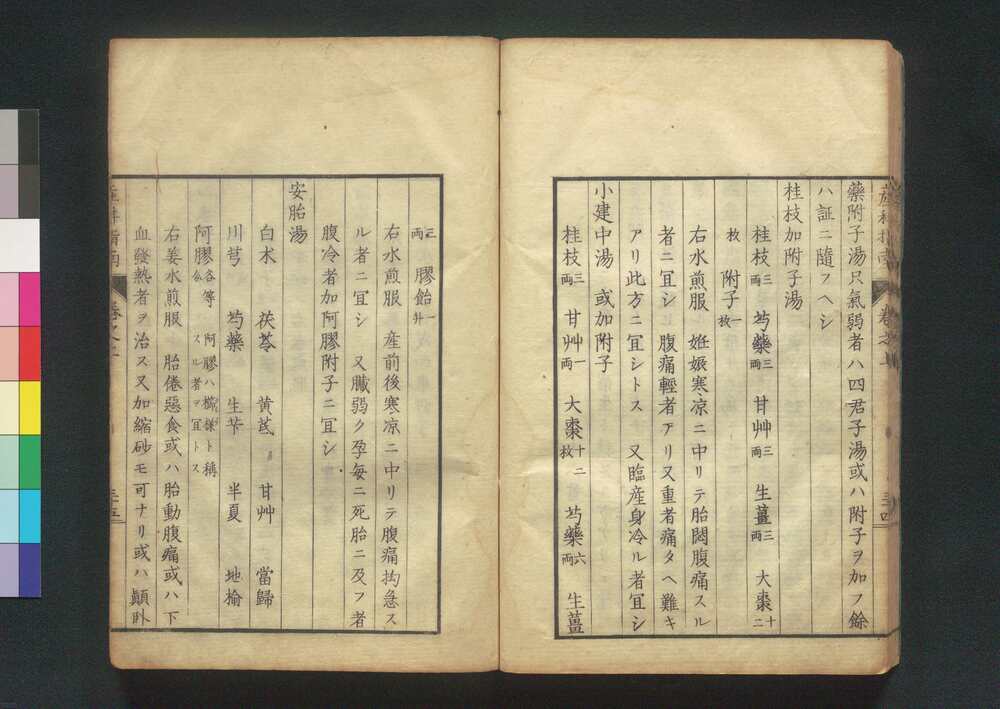 藥附子湯只氣弱者ハ四君子湯或ハ附子ヲ加フ餘
ハ証ニ隨フヘシ
桂枝加附子湯
桂枝三両 芍藥三両 甘艸三両 生薑三両 大棗十二
枚 附子一枚
右水煎服 姙娠寒凉ニ中リテ胎閟腹痛スル
者ニ冝シ 腹痛輕者アリ又重者痛タヘ難キ
アリ此方ニ冝シトス 又臨産身冷ル者冝シ
小建中湯 或加附子
桂枝三両 甘艸一両 大棗十二枚 芍藥六両 生薑
三両 膠飴一升
右水煎服 産前後寒凉ニ中リテ腹痛拘急ス
ル者ニ冝シ 又臟弱ク孕毎ニ死胎ニ及フ者
腹冷者加阿膠附子ニ冝シ
安胎湯
白朮 茯苓 黄芪 甘艸 當歸
川芎 芍藥 生芐 半夏 地榆
阿膠各等分 阿膠ハ樣ト稱スル者ヲ冝トス
右姜水煎服 胎倦惡食或ハ胎動腹痛或ハ下
血發熱者ヲ治ス又加縮砂モ可ナリ或ハ顚臥